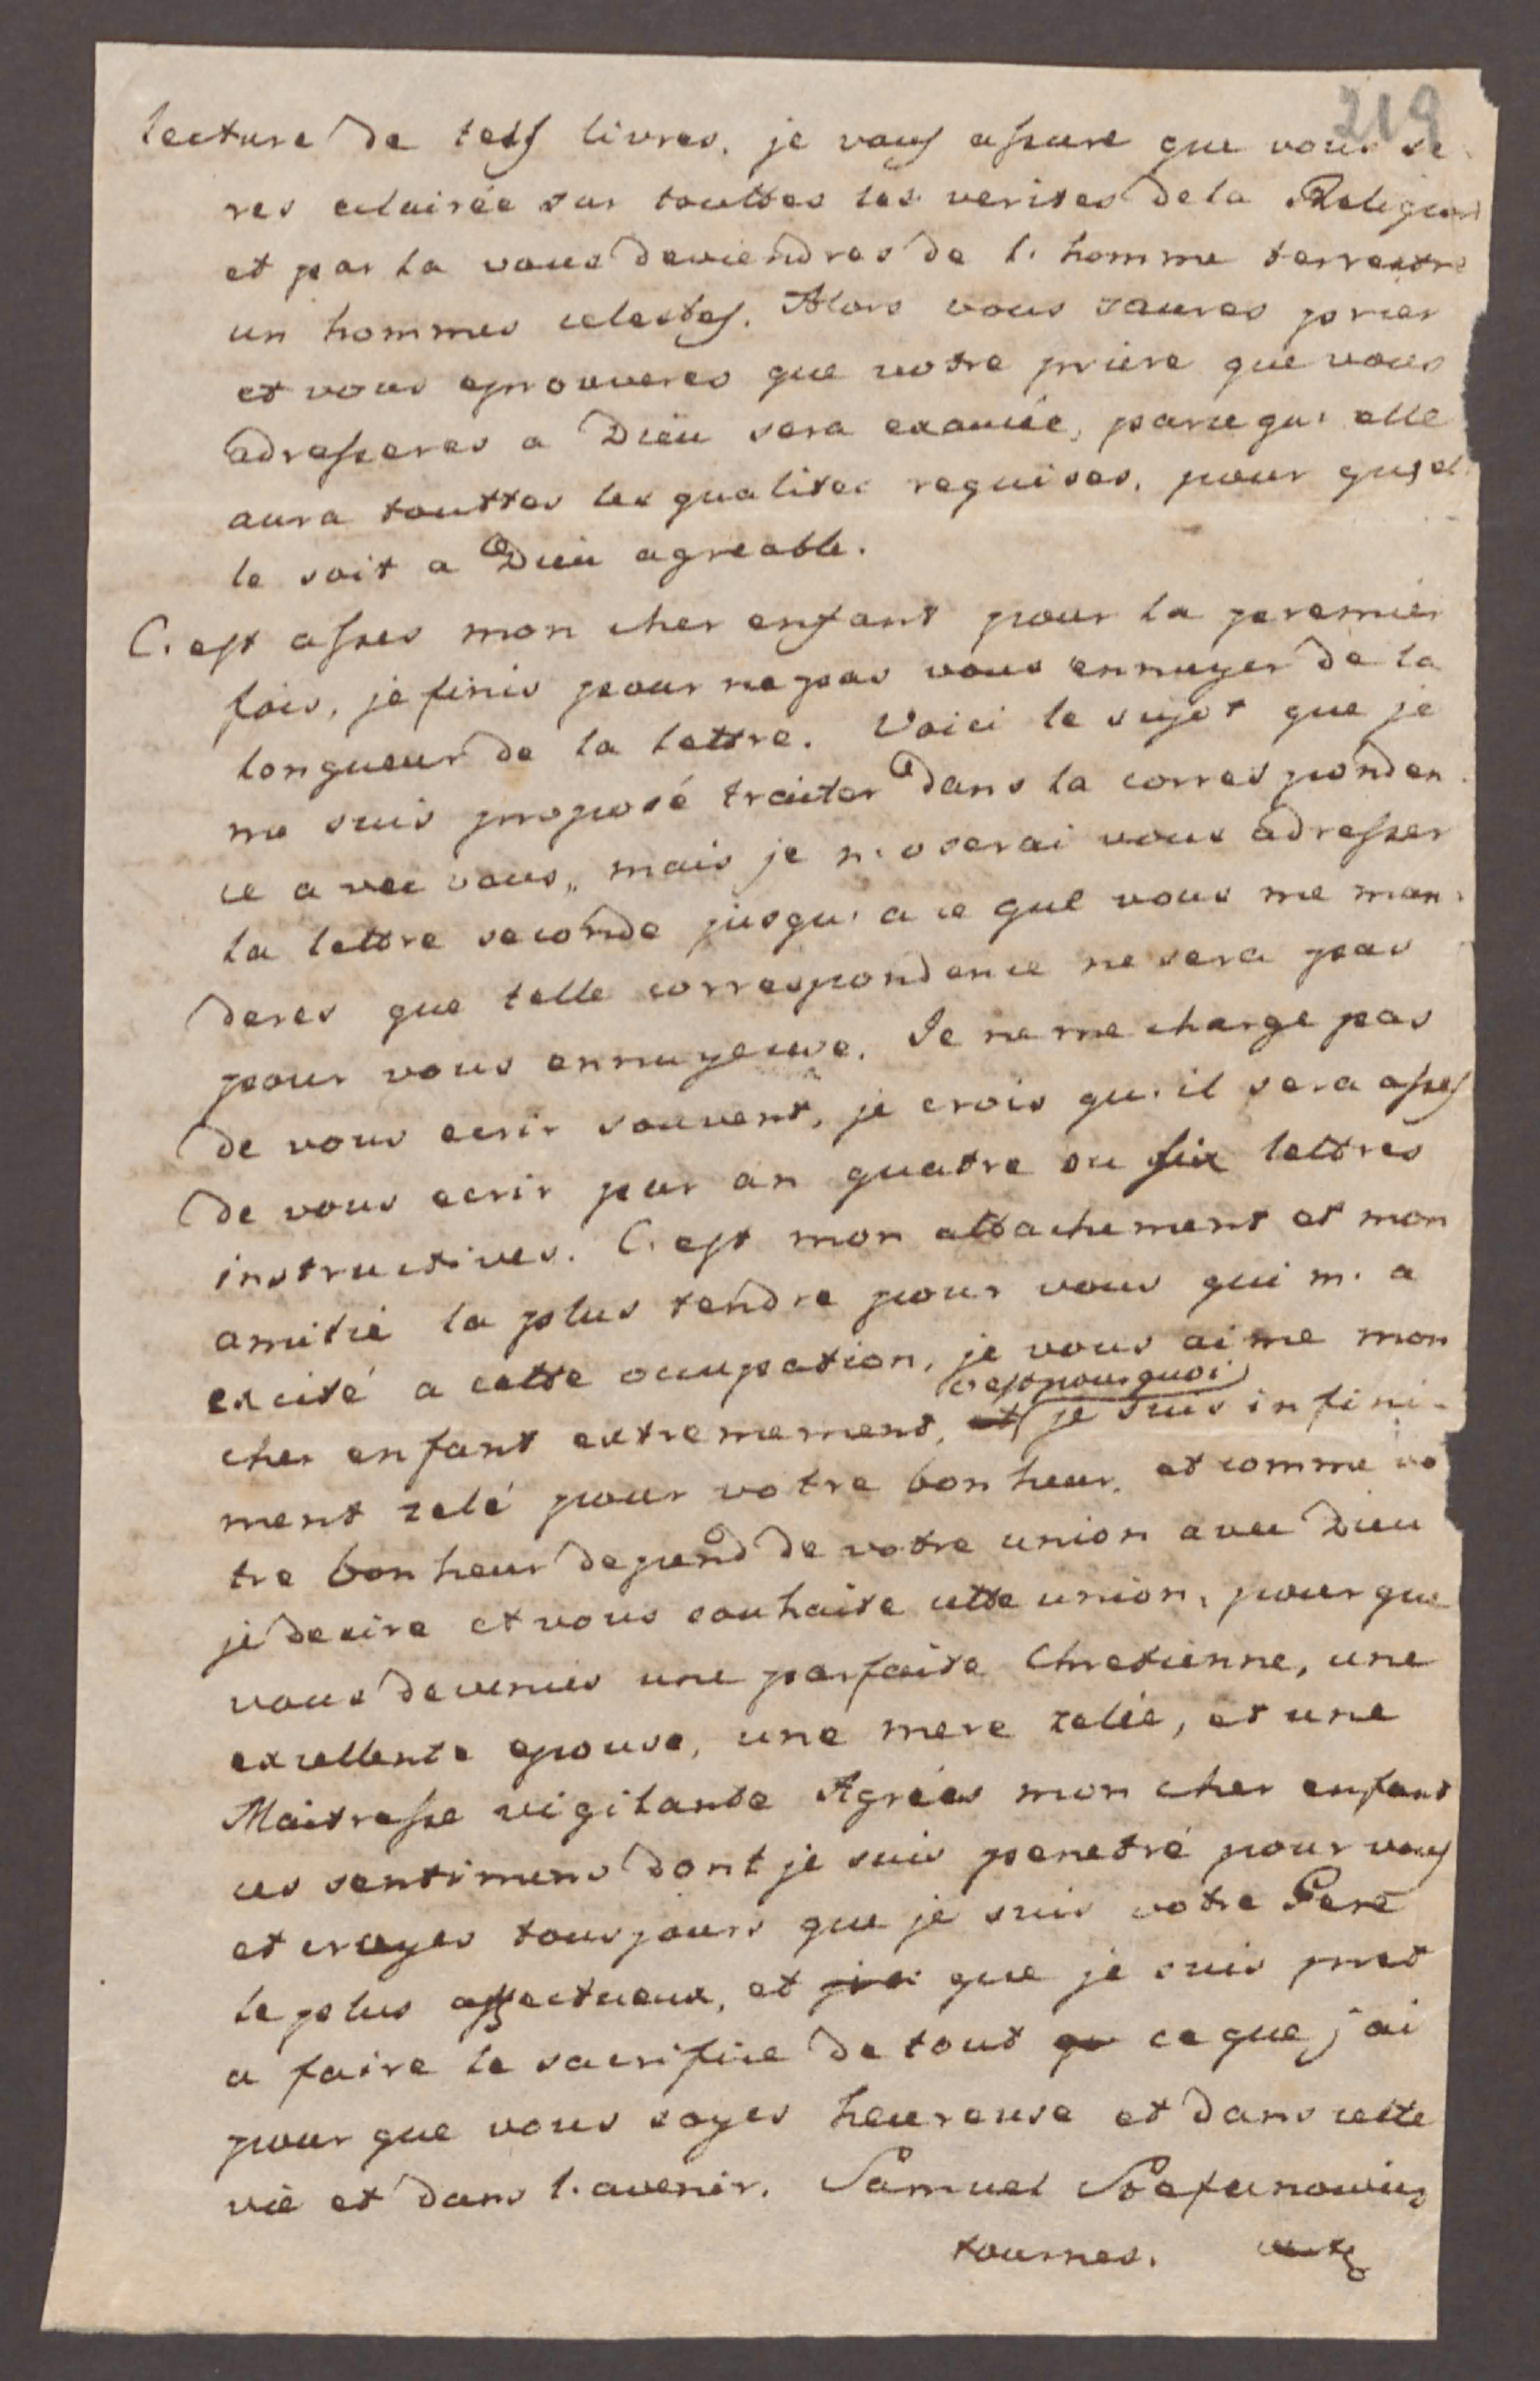 219
lecture de tels livres. je vous assure que vous se
res eclairée sur touttes les verites de la Religion
et par la vous deviendres de l'homme terrestre
un hommes celestes. Alors vous saures prier
et vous eprouveres que votre priere que vous
adresseres a Dieu sera exaucée, parcequ'elle
aura touttes les qualites requises, pour qu'el
le soit a Dieu agreable.
C'est asses mon cher enfant pour la premier
fois, je finis pour ne pas vous ennuyer de la
longueur de la lettre. Voici le sujet que je
me suis proposé traiter dans la corresponden
ce avec vous, mais je n'oserai vous adresser
la lettre seconde jusqu'a ce que vous me man
deres que telle correspondence ne sera pas
pour vous ennuyeuse. Je ne me charge pas
de vous ecrir souvent, je crois qu'il sera asses
de vous ecrir par an quatre ou six lettres
instructives. C'est mon attachement et mon
amitié la plus tendre pour vous qui m'a
excité a cette occupation, je vous aime mon
c'est pourquoi
cher enfant extremement, et je suis infini-
ment zelé pour votre bonheur, et comme vo
tre bonheur depend de votre union avec Dieu
je desire et vous souhaite cette union, pour que
vous devenies une parfaite Chretienne, une
excellente epouse, une mere zelée, et une
Maitresse vigilante Agrées mon cher enfant
ces sentimens dont je suis penetré pour vous
et croyes tousjours que je suis votre Pere
le plus affectueux, et que je suis pret
a faire le sacrifice de tout qu ce que j'ai
pour que vous soyes heureuse et dans cette
vie et dans l'avenir. Samuel Stefanowicz
tournes.